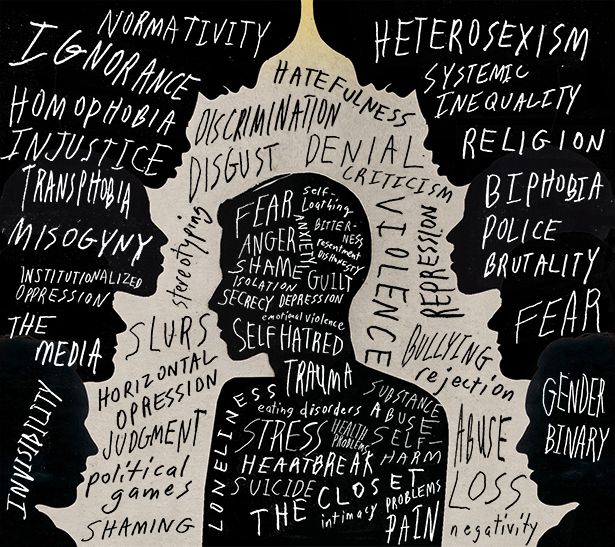 NORMATIVITY
IGNORANCE
HOMOPHOBIA
INJUSTICE
TRANSPHOBIA
MISOGYNY
INSTITUTIONALIZED
OPPRESSION
THE
MEDIA
INVISIBILITY
HATEFULNESS
DISCRIMINATION
DISGUST
DENIAL
CRITICISM
stereotyping
VIOLENCE
REPRESSION
SLURS
HORIZONTAL
OPRESSION
JUDGMENT
political
games
SHAMING
BULLYING
rejection
ABUSE
LOSS
negativity
FEAR
self-
loathing
ANXIETY
BITTER-
NESS
ANGER
resentment
DISHONESTY
SHAME
GUILT
ISOLATION
SECRECY DEPRESSION
emotional violence
SELF HATRED
TRAUMA
LONELINESS
SUBSTANCE
ABUSE
eating disorders
STRESS
HEALTH
PROBLEMS
SELF-
HARM
HEARTBREAK
SUICIDE
THE CLOSET
intimacy PROBLEMS
PAIN
HETEROSEXISM
SYSTEMIC
INEQUALITY
RELIGION
BIPHOBIA
POLICE
BRUTALITY
FEAR
GENDER
BINARY